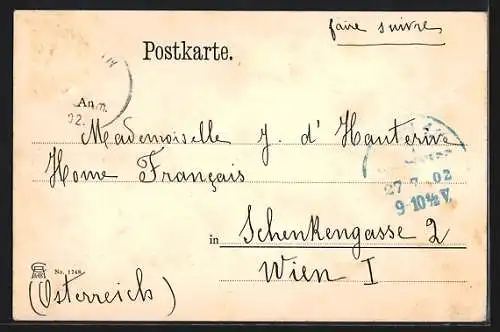 faire suivre
Postkarte.
An
Mademoiselle J. d'Hauterive
Home Français
27 02
9-10½V.
in Schenkengasse 2
Wien I
No. 1248
(Osterreich)